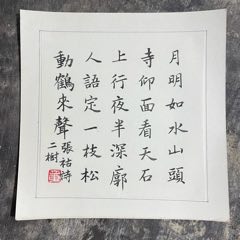 月明如水山頭
寺仰面看天石
上行夜半深廊
人語定一枝松
動鶴來聲
張祜詩
二樹